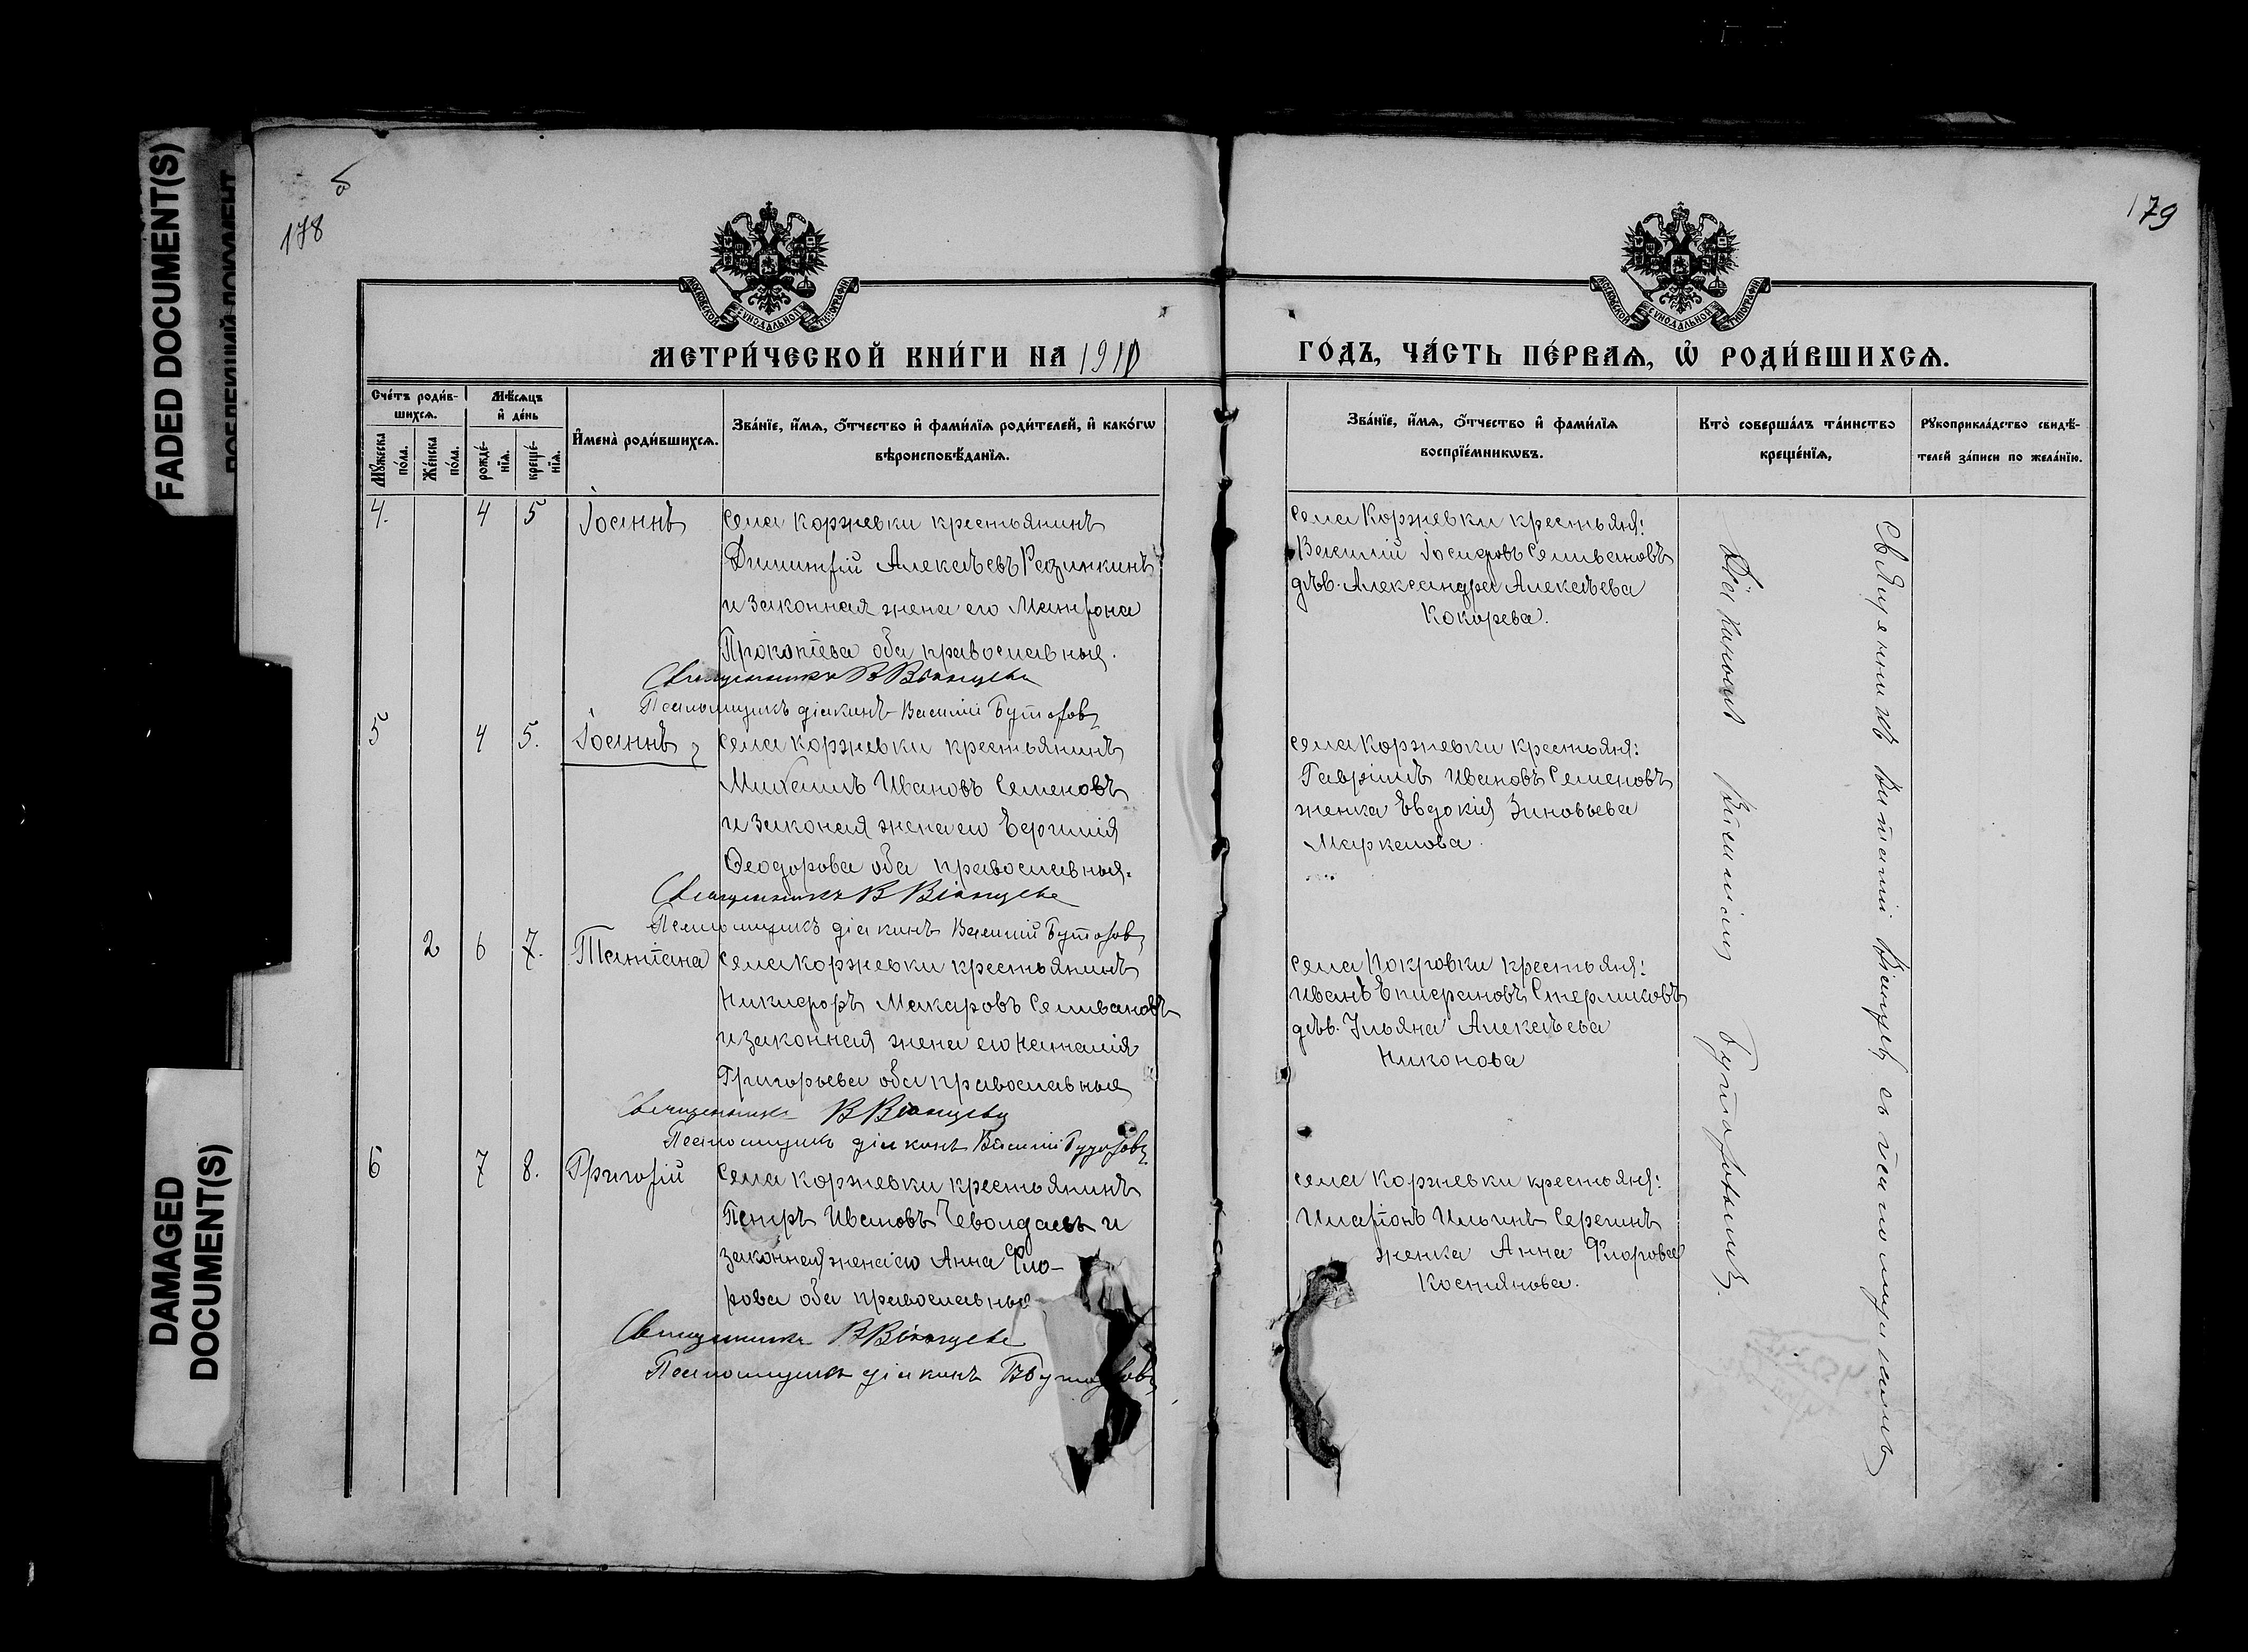 FADED DOCUMENT(S)
DAMAGED
DOCUMENT(S)
178
179
МЕТРИ́ЧЕСКОЙ КНИ́ГИ НА 1910
ГО́ДЪ, ЧА́СТЬ ПЕ́РВАѦ, Ѡ҆ РОДИ́ВШИХСѦ.
Сче́тъ роди́в-
шихсѧ.
Мѣ́сѧцъ
и҆ де́нь
Мꙋ́жеска
по́ла.
Же́нска
по́ла.
рожде́-
нїѧ.
креще́-
нїѧ.
И҆мена̀ роди́вшихсѧ.
Зва́нїе, и҆́мѧ, ѻ҆́тчество и҆ фами́лїѧ роди́телей, и҆ како́гѡ
вѣроисповѣ́данїѧ.
Зва́нїе, и҆́мѧ, ѻ҆́тчество и҆ фами́лїѧ
воспрїе́мникѡвъ.
Кто̀ соверша́лъ та́инство
креще́нїѧ,
Рꙋкоприкла́дство свидѣ́-
телей за́писи по жела́нїю.
4. 4 5 Іоаннъ села Коржевки крестьянинъ
Димитрій Алексѣевъ Резинкинъ
и законная жена его Матрона
Прокопіева оба православныя.
Священникъ В Віонцевъ
Псаломщикъ діаконъ Василій Буторовъ
села Коржевки крестьяня:
Василій Іосифовъ Селивановъ
дѣв. Александра Алексѣева
Кокорева.
5 4 5. Іоаннъ села Коржевки крестьянинъ
Михаилъ Ивановъ Семеновъ
и законая жена его
Феодорова оба православныя.
Священникъ В Віонцевъ
Псаломщикъ діаконъ Василій Буторовъ
села Коржевки крестьяня:
Гавріилъ Ивановъ Семеновъ
женка Евдокія Зиновьева
Маркелова.
2 6 7. Татіана села Коржевки крестьянинъ
Никифоръ Макаровъ Селивановъ
и законная жена его Наталія
Григорьева оба православныя
Священникъ В Віонцевъ
Псаломщикъ діаконъ Василій Буторовъ
села Покровки крестьяня:
Иванъ Епифановъ Стерликовъ
дѣв. Ульяна Алексѣева
Никонова
6 7 8. Григорій села Коржевки крестьянинъ
Петръ Ивановъ Чеволдаевъ и
законная жена его Анна Фло-
рова оба православныя
Священникъ В Віонцевъ
Псаломщикъ діаконъ В Буторовъ
села Коржевки крестьяня:
Иларіонъ Ильинъ Серегинъ
женка Анна Флорова
Костянова.
Священникъ Виталій Віонцевъ съ псаломщикомъ
Діакономъ Василіемъ Буторовымъ.